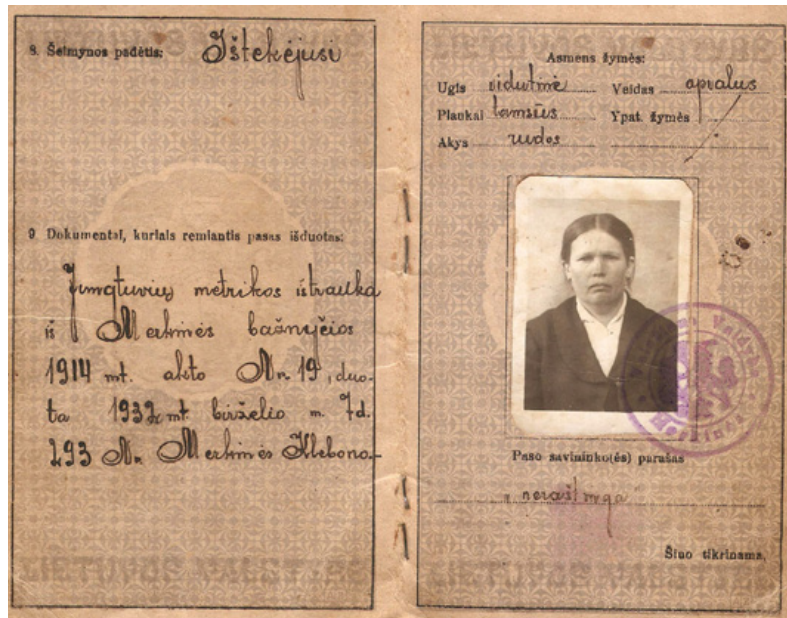 8. Šeimynos padėtis: Ištekėjusi
9. Dokumentai, kuriais remiantis pasas išduotas:
Jungtuvių metrikos ištrauka
iš Merkinės bažnyčios
1914 mt. akto Nr. 19, duo-
ta 1932 mt. birželio m. 7 d.
293 Nr. Merkinės Klebono.
Asmens žymės:
Ugis vidutinė Veidas apvalus
Plaukai tamsūs Ypat. žymės
Akys rudos
Paso savininko(ės) parašas
neraštinga
Šiuo tikrinama,